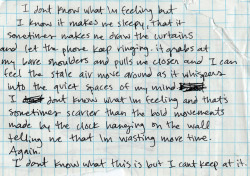 I dont know what Im feeling but
I know it makes me sleepy, That it
sometimes makes me draw the curtains
and let the phone keep ringing. it grabs at
my bare shoulders and pulls me closer and I can
feel the stale air move around as it whispers
into the quiet spaces of my mind
I dont know what Im feeling and thats
sometimes scarier than the bold movements
made by the clock hanging on the wall
telling me that Im wasting more time.
Again.
I dont know what this is but I cant keep at it.